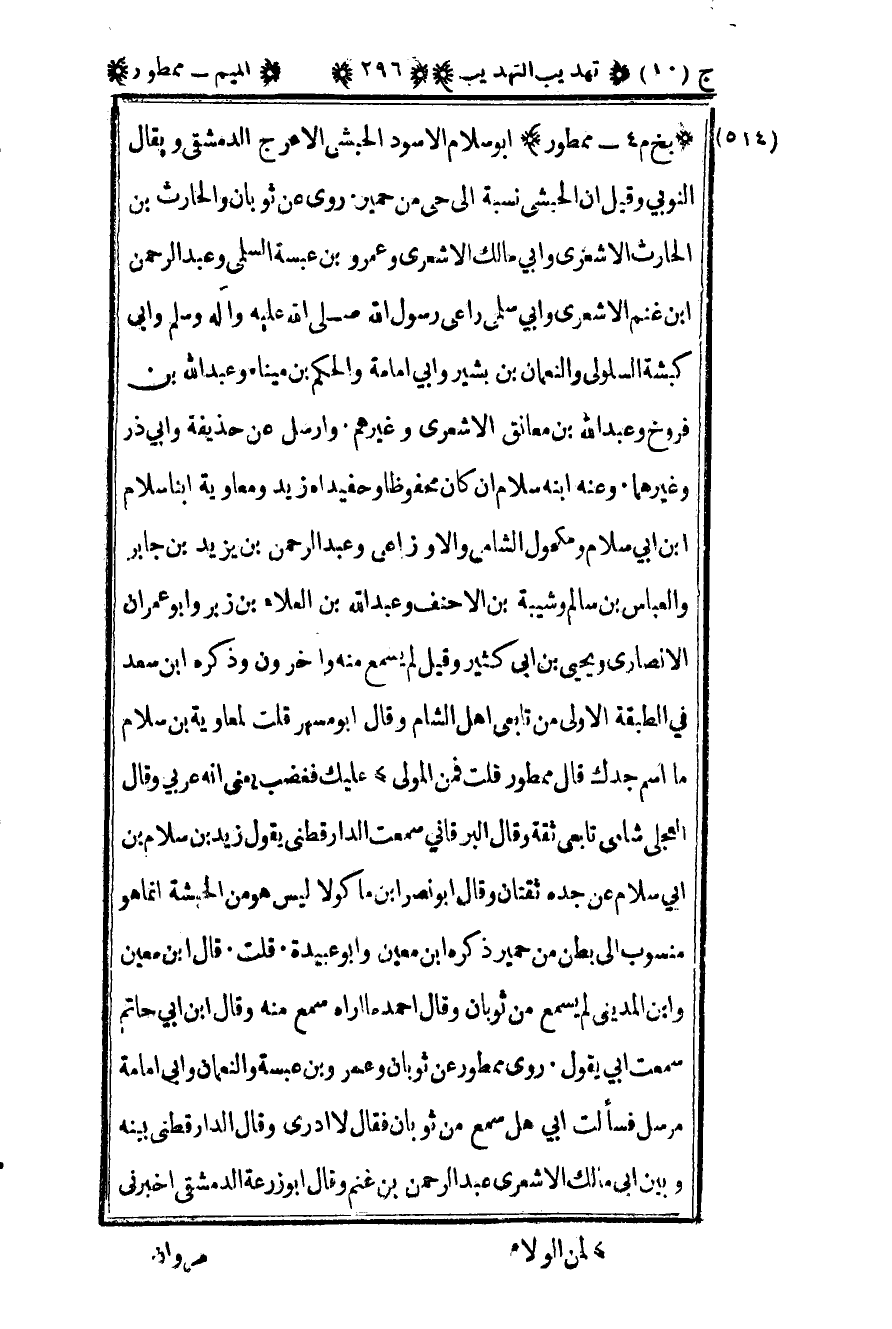 ج (١٠) ❋ تهذيب التهذيب ❋❋ ٢٩٦ ❋ ❋ الميم ــ ممطور ❋
(٥١٤) ❋ بخ م٤ ــ ممطور ❋ ابو سلام الاسود الحبشى الاعرج الدمشقى ويقال
النوبي وقيل ان الحبشى نسبة الى حى من حمير٠ روى عن ثوبان والحارث بن
الحارث الاشعرى وابي مالك الاشعرى وعمرو بن عبسة السلمى وعبدالرحمن
ابن غنم الاشعرى وابي سلمى راعى رسول الله صلى الله عليه وآله وسلم وابى
كبشة السلولى والنعمان بن بشير وابي امامة والحكم بن ميناء وعبدالله بن
فروخ وعبدالله بن معانق الاشعرى وغيرهم٠ وارسل عن حذيفة وابي ذر
وغيرهما٠ وعنه ابنه سلام ان كان محفوظا وحفيداه زيد ومعاوية ابنا سلام
ابن ابي سلام ومكحول الشامى والاوزاعى وعبدالرحمن بن يزيد بن جابر
والعباس بن سالم وشيبة بن الاحنف وعبدالله بن العلاء بن زبر وابو عمران
الانصارى ويحيى بن ابى كثير وقيل لم يسمع منه وآخرون وذكره ابن سعد
في الطبقة الاولى من تابعى اهل الشام وقال ابو مسهر قلت لمعاوية بن سلام
ما اسم جدك قال ممطور قلت فمن المولى ٤ عليك فغضب يعنى انه عربي وقال
العجلى شامى تابعى ثقة وقال البرقاني سمعت الدارقطنى يقول زيد بن سلام بن
ابي سلام عن جده ثقتان وقال ابو نصر ابن ماكولا ليس هو من الحبشة انما هو
منسوب الى بطن من حمير ذكره ابن معين وابو عبيدة٠ قلت٠ قال ابن معين
وابن المدينى لم يسمع من ثوبان وقال احمد ما اراه سمع منه وقال ابن ابي حاتم
سمعت ابي يقول٠ روى ممطور عن ثوبان وعمر وبن عبسة والنعمان وابى امامة
مرسل فسألت ابي هل سمع من ثوبان فقال لا ادرى وقال الدارقطنى بينه
وبين ابى مالك الاشعرى عبدالرحمن بن غنم وقال ابو زرعة الدمشقى اخبرنى
٤ لمن الولاء
مروان